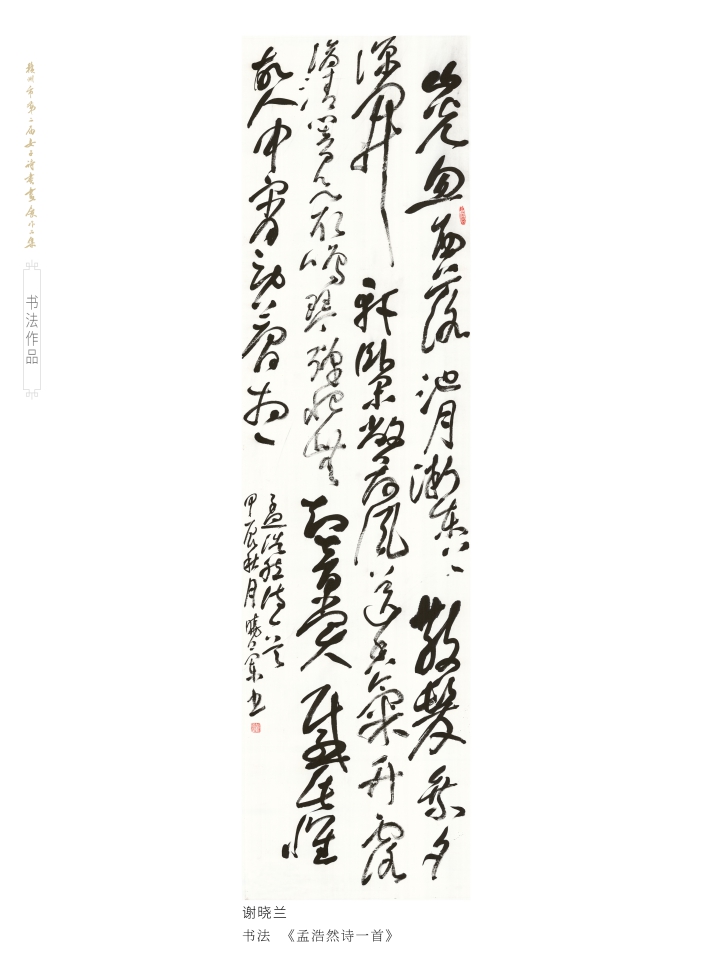 赣州市第二届女子诗書畫展作品集
书法作品
山光忽西落池月渐东上散髮乘夕
凉开轩卧闲敞荷风送香氣竹露
滴清響欲取鸣琴弹恨無知音賞感此懷
故人中宵劳夢想
孟浩然诗一首
甲辰秋月晓兰书
谢晓兰
书法 《孟浩然诗一首》